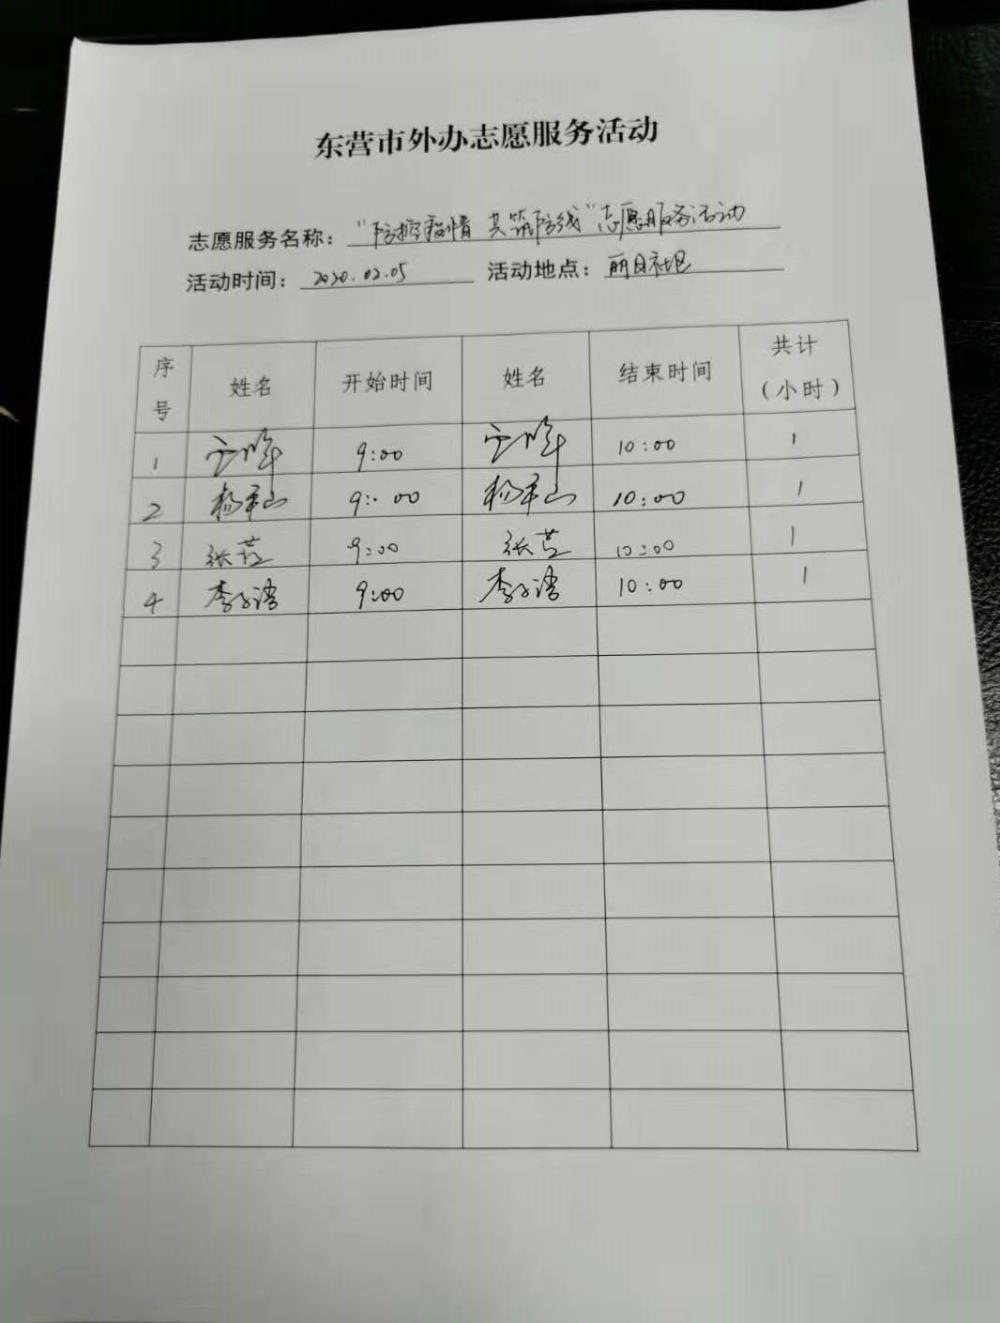 东营市外办志愿服务活动
志愿服务名称："防控疫情 共筑防线"志愿服务活动
活动时间：2020.02.05 活动地点：丽日社区
序号 姓名 开始时间 姓名 结束时间 共计（小时）
1 9:00 10:00 1
2 杨军山 9:00 杨军山 10:00 1
3 张芸 9:00 张芸 10:00 1
4 李 9:00 李 10:00 1